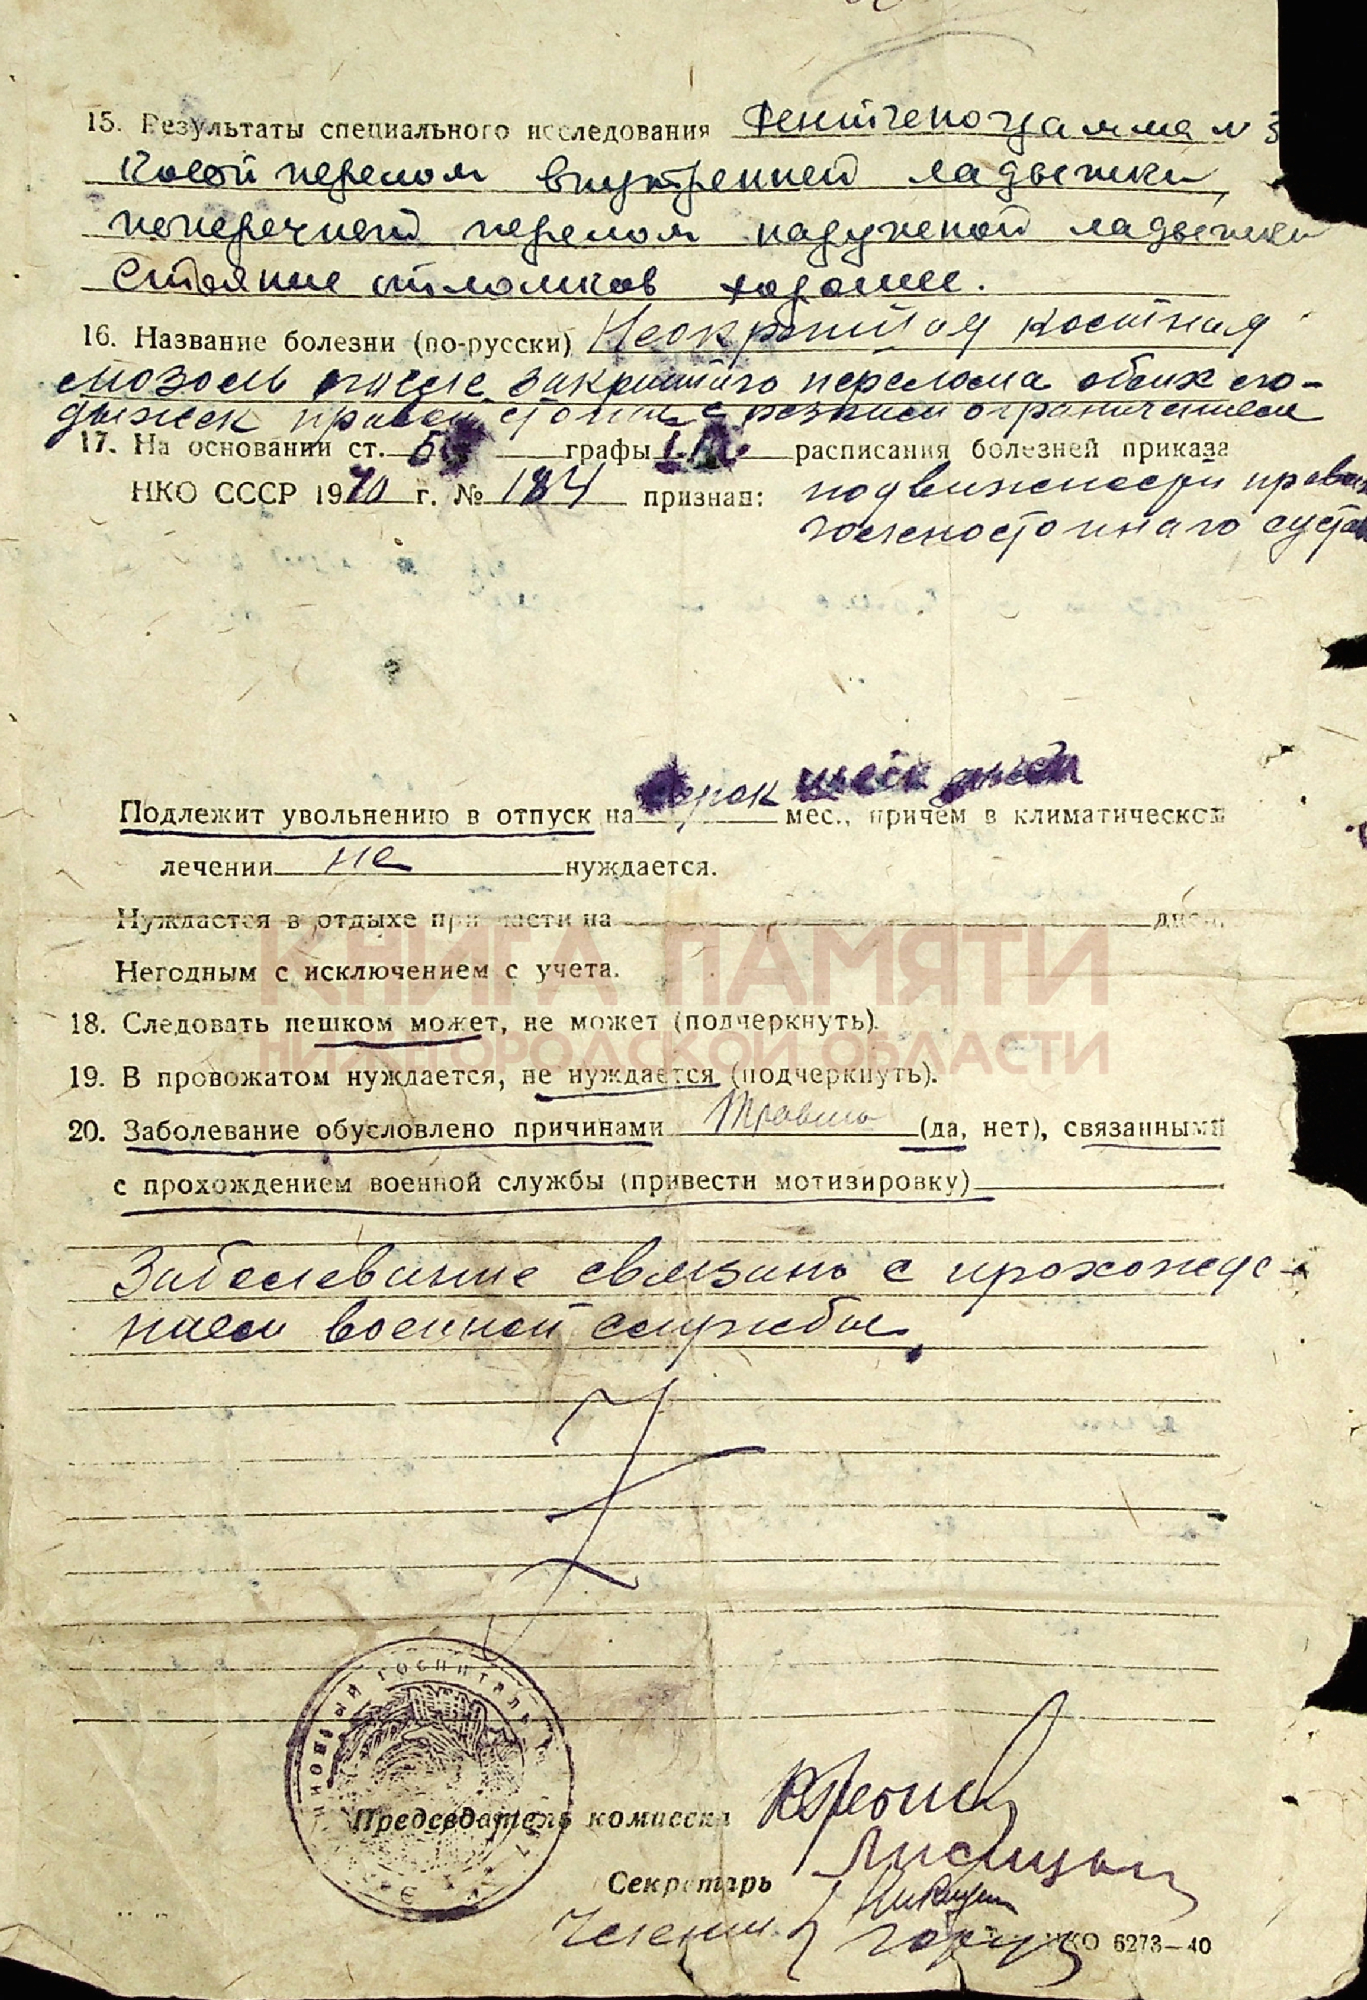 15. Результаты специального исследования Рентгенограмма N 3
Косой перелом внутренней ладыжки,
поперечной перелом наружной ладыжки
Стояние отломков хорошее.
16. Название болезни (по-русски) Неокрепшая костная
мозоль после закрытого перелома обеих ло-
дыжек правой стопы с резким ограничением
17. На основании ст. графы расписания болезней приказа
НКО СССР 1940 г. № 184 признан: подвижности право
голеностопного суста
Подлежит увольнению в отпуск на сорок шесть дней мес., причем в климатической
лечении не нуждается.
Нуждается в отдыхе при части на дней.
Негодным с исключением с учета.
КНИГА ПАМЯТИ
18. Следовать пешком может, не может (подчеркнуть).
НИЖЕГОРОДСКОЙ ОБЛАСТИ
19. В провожатом нуждается, не нуждается (подчеркнуть).
20. Заболевание обусловлено причинами травмы (да, нет), связанными
с прохождением военной службы (привести мотивировку)
Заболевание связано с прохожде-
нием военной службы.
ГОСПИТАЛЬ
Председатель комиссии
Секретарь
Члены
НКО 6273—40